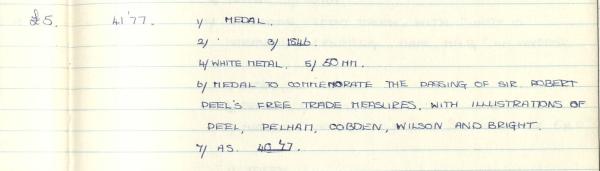 £5. 41'77. 1/ MEDAL.
2/ ' 3/ 1846.
4/ WHITE METAL. 5/ 50 MM.
6/ MEDAL TO COMMEMORATE THE PASSING OF SIR. ROBERT
PEEL'S FREE TRADE MEASURES, WITH ILLUSTRATIONS OF
PEEL, PELHAM, COBDEN, WILSON AND BRIGHT.
7/ AS. 40'77.